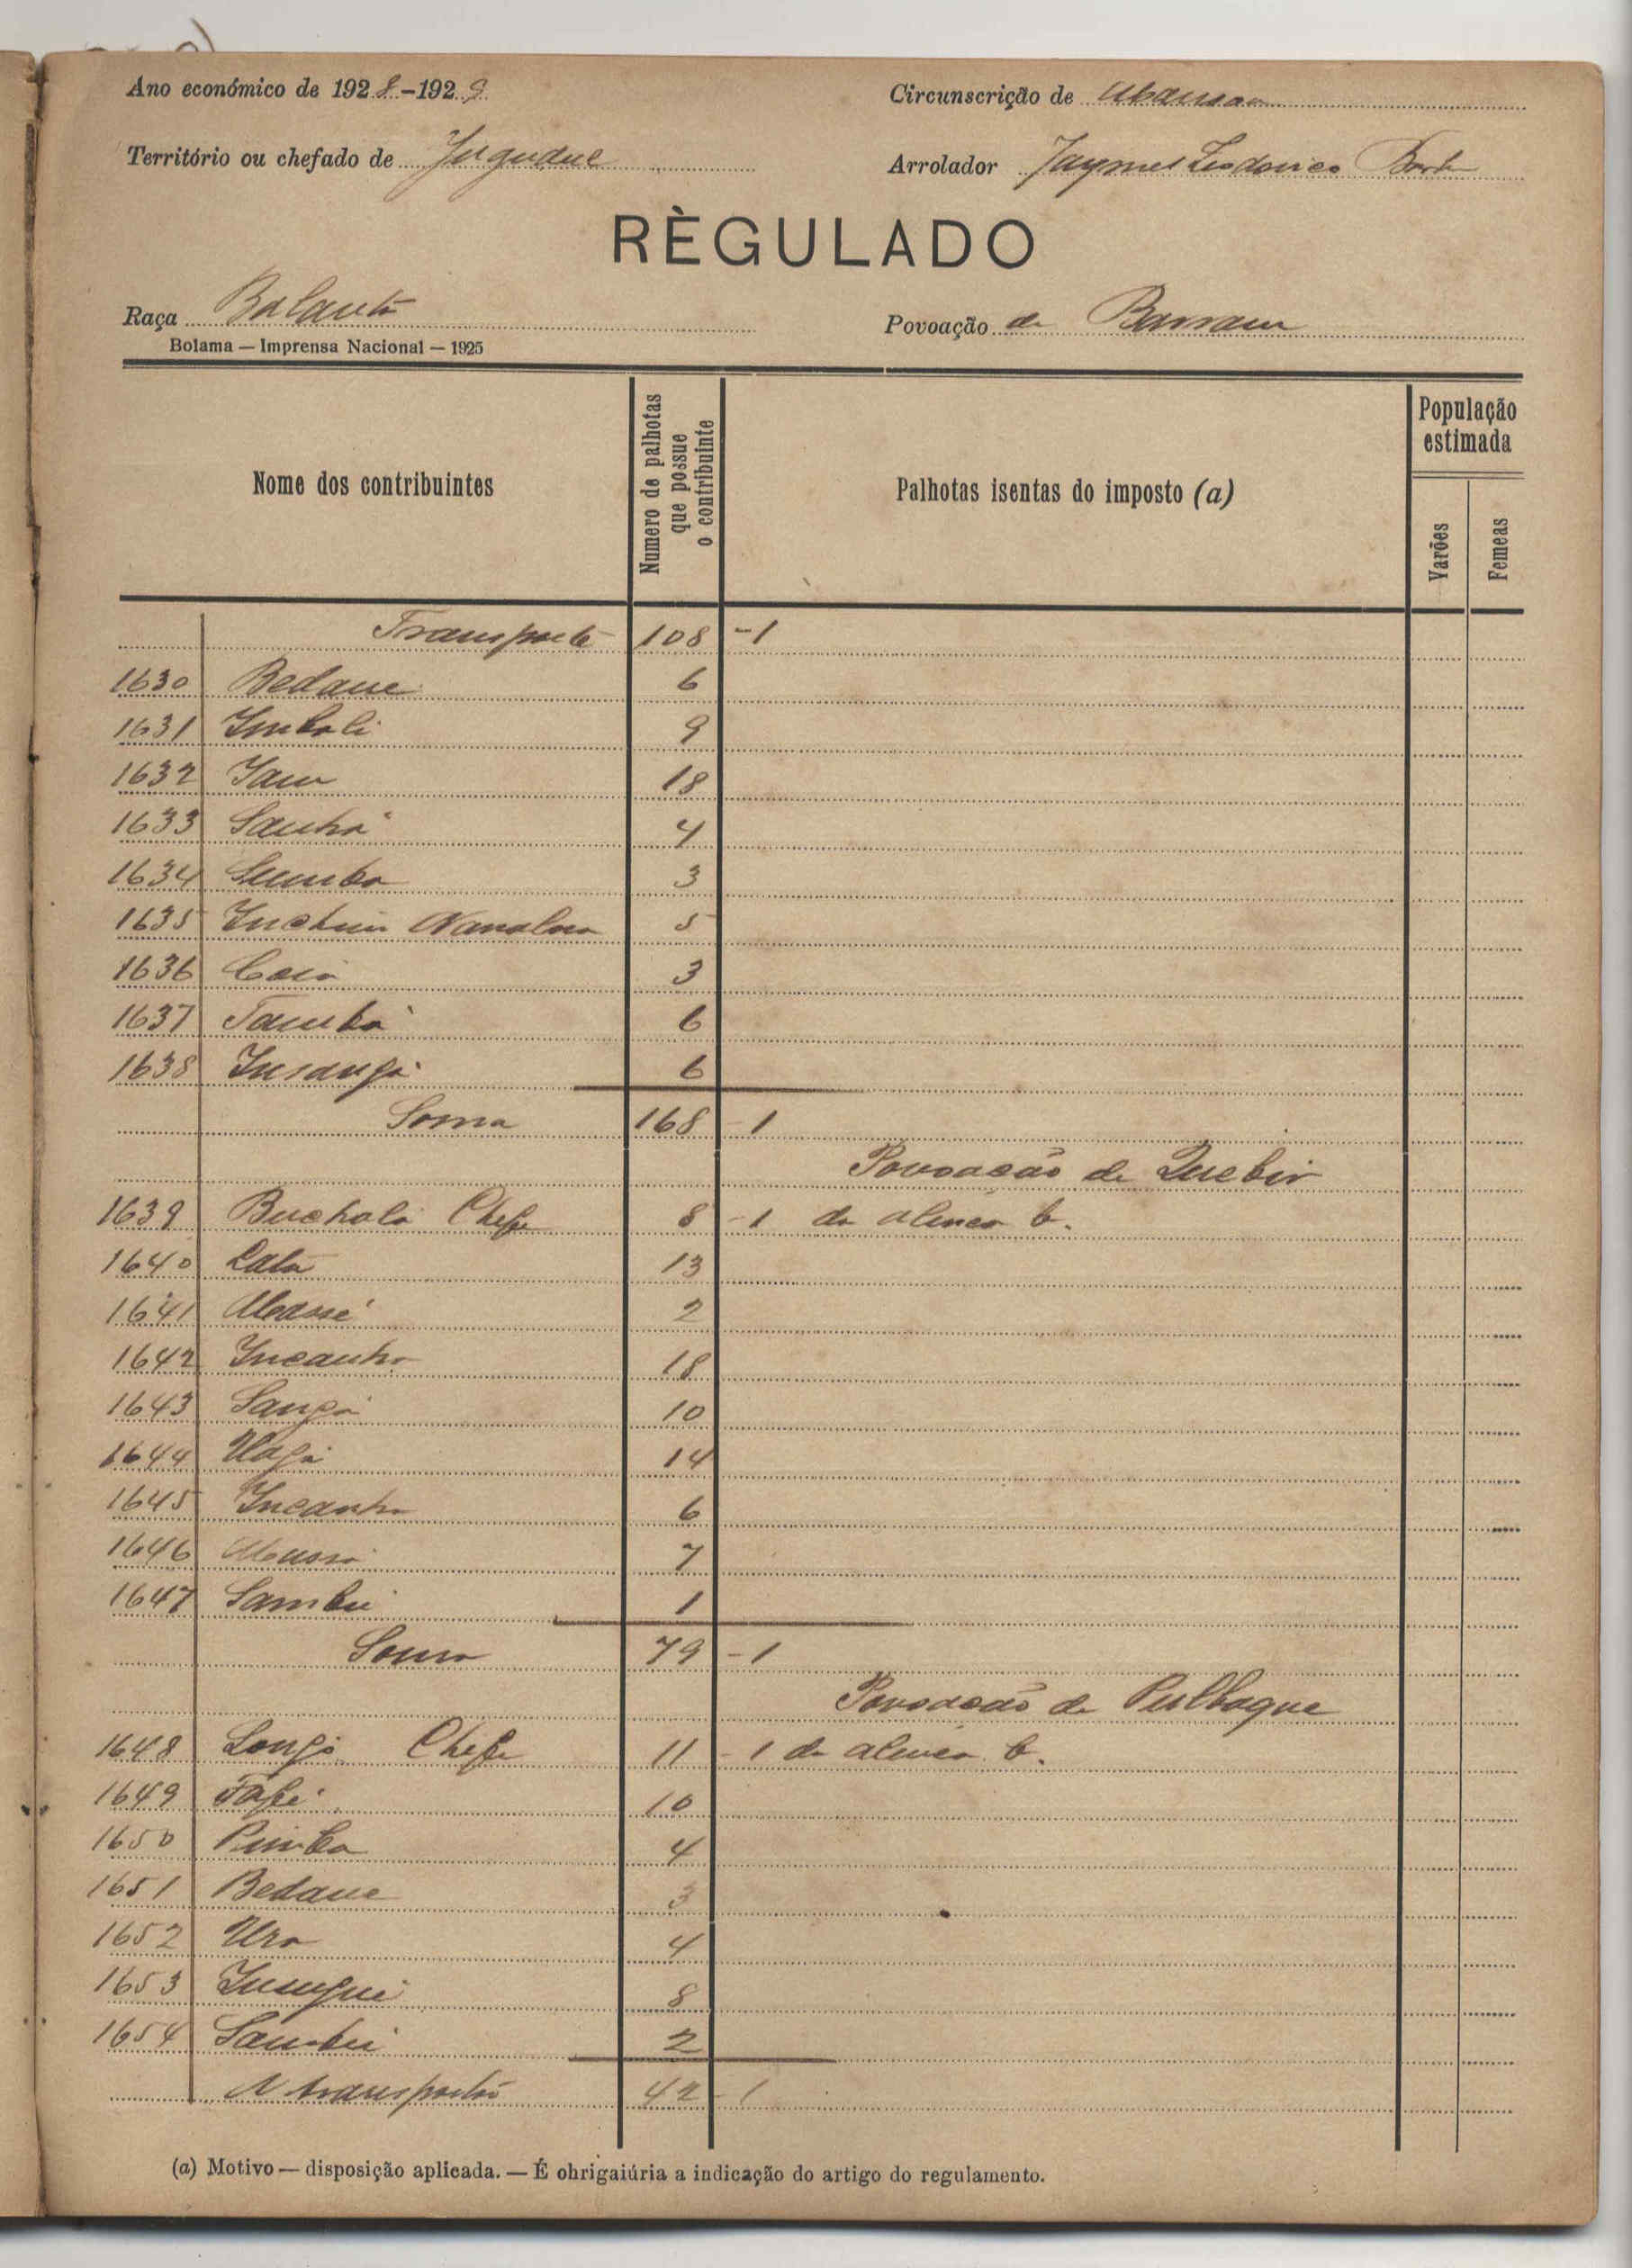 Ano económico de 1928-1929
Circunscrição de Mansoa
Território ou chefado de Jugudul
Arrolador Jaymes Ludovico
RÈGULADO
Raça Balanta
Povoação de
Bolama — Imprensa Nacional — 1925
Nome dos contribuintes
Numero de palhotas que possue o contribuinte
Palhotas isentas do imposto (a)
População estimada
Varões
Femeas
Transporte 108 - 1
1630 Bedane 6
1631 Imbali 9
1632 Iam 18
1633 Sanhá 4
1634 3
1635 5
1636 3
1637 Tambá 6
1638 Insanga 6
Soma 168 - 1
Povoação de Quebir
1639 Buchalá Chefe 8 - 1 da alinea b.
1640 Lata 13
1641 Massé 2
1642 Incanha 18
1643 Sanga 10
1644 14
1645 Incanha 6
1646 Mussá 7
1647 Sambú 1
Soma 79 - 1
Povoação de
1648 Chefe 11 - 1 da alinea b.
1649 10
1650 4
1651 Bedane 3
1652 Ura 4
1653 8
1654 Sambú 2
A transportar 42 - 1
(a) Motivo — disposição aplicada. — É ohrigaiúria a indicação do artigo do regulamento.